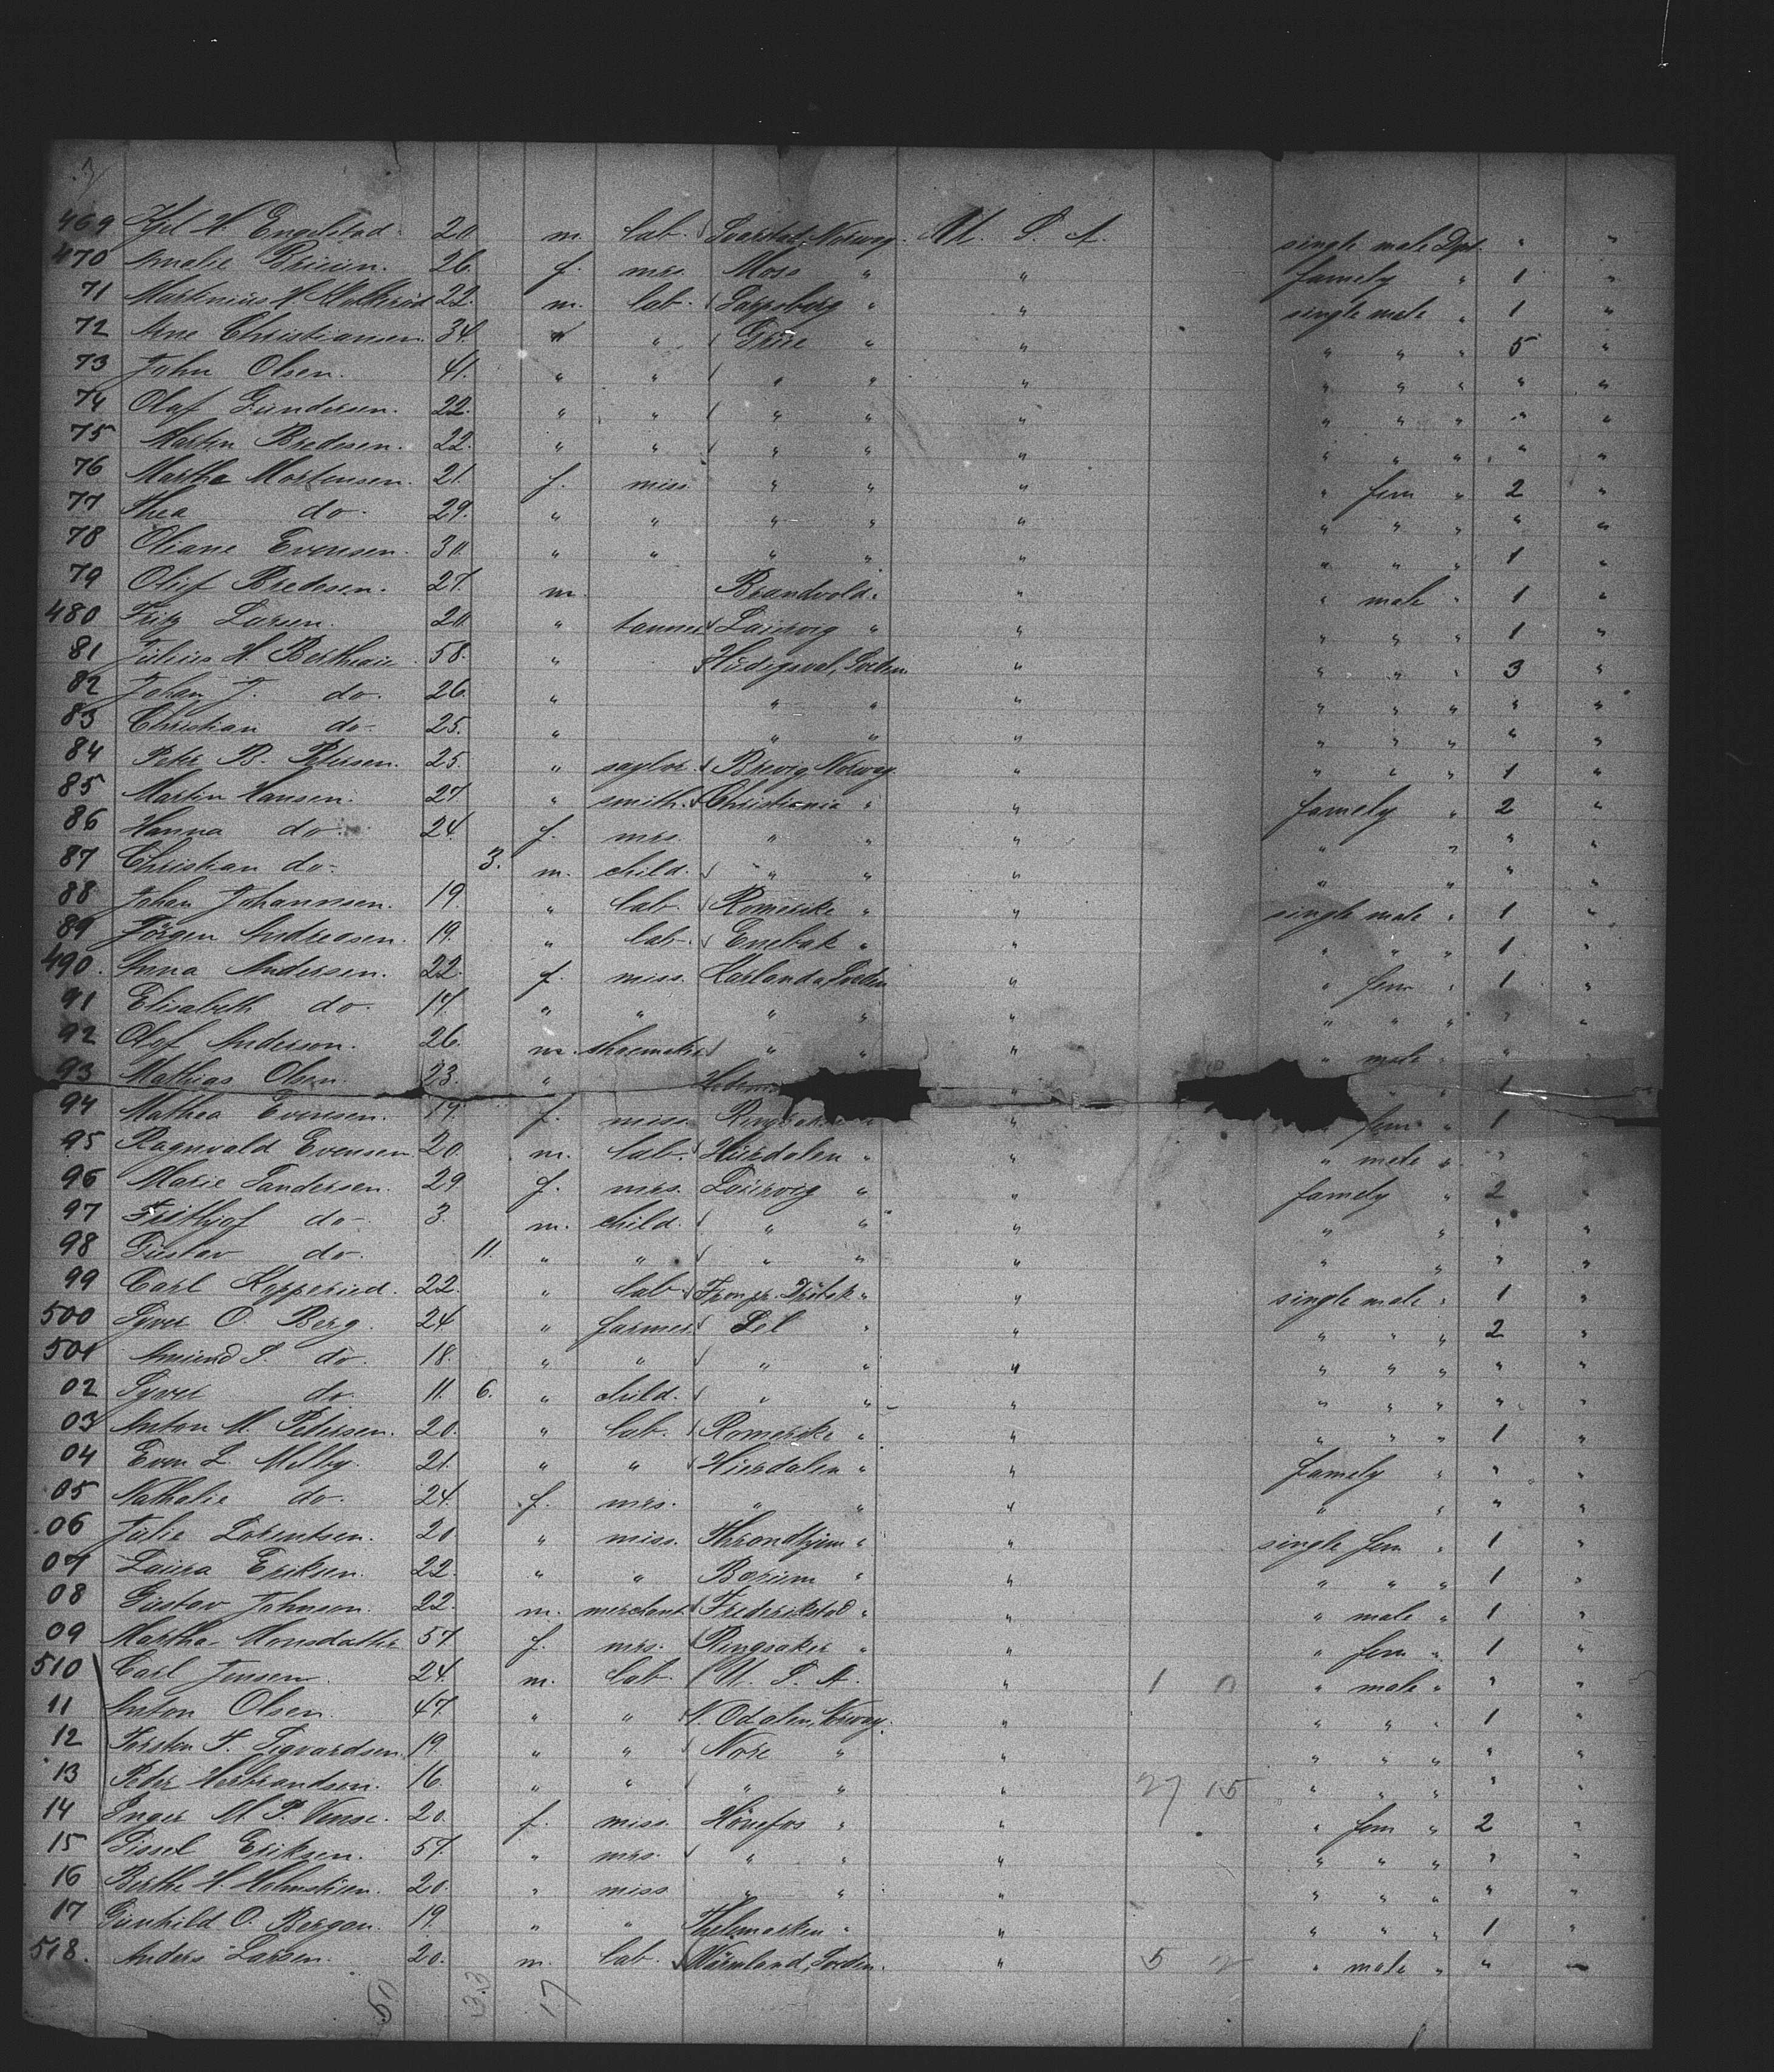 469 Kjel H. Engelstad. 20 m. lab. Svarstad, Norway. U. S. A. single male Dpt. " "
470 Amalie 26. f. mrs. Moss " " famely " 1 "
71 Martinius H. 22. m. lab. Sarpsborg " " single male " 1 "
72 Arne Christiansen 34. " " Grue " " " " " 5 "
73 John Olsen. 41. " " " " " " " " " "
74 Olaf Gundersen. 22. " " " " " " " " " "
75 Martin Bredesen. 22. " " " " " " " " " "
76 Martha Mortensen. 21. f. miss " " " " fem " 2 "
77 Thea do. 29. " " " " " " " " " "
78 Oliane Evensen. 30. " " " " " " " " 1 "
79 Oluf Bredesen. 27. m. Brandvold " " " male " 1 "
480 Fritz Larsen. 20. " tanner Laurvig " " " " " 1 "
81 Julius H. 58. " Hudigsval, Sveden " " " " 3 "
82 Johan J. do. 26. " " " " " " " " "
83 Christian do. 25. " " " " " " " " "
84 Peter B. Petersen. 25. " saylor. Brevig Norway " " " " 1 "
85 Martin Hansen. 27 " smith. Christiania " " famely " 2 "
86 Hanna do. 24. f. mrs. " " " " " " "
87 Christian do. 3. m. child. " " " " " " "
88 Johan Johannsen. 19. " lab. Romerike " " single male " 1 "
89 Jörgen Andreasen. 19. " lab. Enebak " " " " " 1 "
490. Anna Andersen. 22. f. miss. Harlanda, Sveden " " fem " 1 "
91 Elisabeth do. 17. " " " " " " " " " "
92 Olof Anderson. 26. m. shoemaker " " " " male " " "
93 Mathias Olsen. 23. " " " " 1 "
94 Mathea Evensen. 19. f. miss. " " fem " 1
95 Ragnvald Evensen 20. m. lab. Hurdalen " " " male " "
96 Marie Sandersen. 29 f. mrs. Laurvig " " famely " 2 "
97 Frithjof do. 3. m. child. " " " " " " "
98 Gustav do. 11. " " " " " " " " "
99 Carl 22. " lab. " " single male " 1 "
500 Syver O. Berg. 24 " farmer. Lel " " " " " 2 "
501 Amund S. do. 18. " " " " " " " " " "
02 Syver do. 11. 6. " child. " " " " " " " "
03 Anton M. Petersen. 20. " lab. Romerike " " " " " 1 "
04 Even L. Melby. 21. " " Hurdalen " " famely " " "
05 Nathalie do. 24. f. mrs. " " " " " " "
06 Julie Lorentsen. 20 " miss. Throndhjem " " single fem " 1 "
07 Laura Eriksen. 22. " " Bærum " " " " " 1 "
08 Gustav Johnson. 22. m. merchant Frederikstad " " " male " 1 "
09 Martha Monsdatter 57. f. mrs. Ringsaker " " " fem " 1 "
510 Carl Jensen. 24. m. lab. U. S. A. " 1 0 " male " " "
11 Anton Olsen. 47. " " N. Odalen, Norway. " " " " 1 "
12 Torsten T. Sigvardsen. 19. " " Nore " " " " " " "
13 Peder Herbrandsen. 16. " " " " " 27 15 " " " " "
14 Inger M. P. 20. f. miss. Hönefos " " " fem " 2 "
15 Sissel Eriksen. 57. " mrs. " " " " " " " "
16 Berthe H. 20. " miss " " " " " " " "
17 Gunhild O. Bergan. 19. " " Thelemarken " " " " " 1 "
518. Anders Larsen. 20. m. lab. Wärmland, Sveden. " 5 " male " " "
33 17